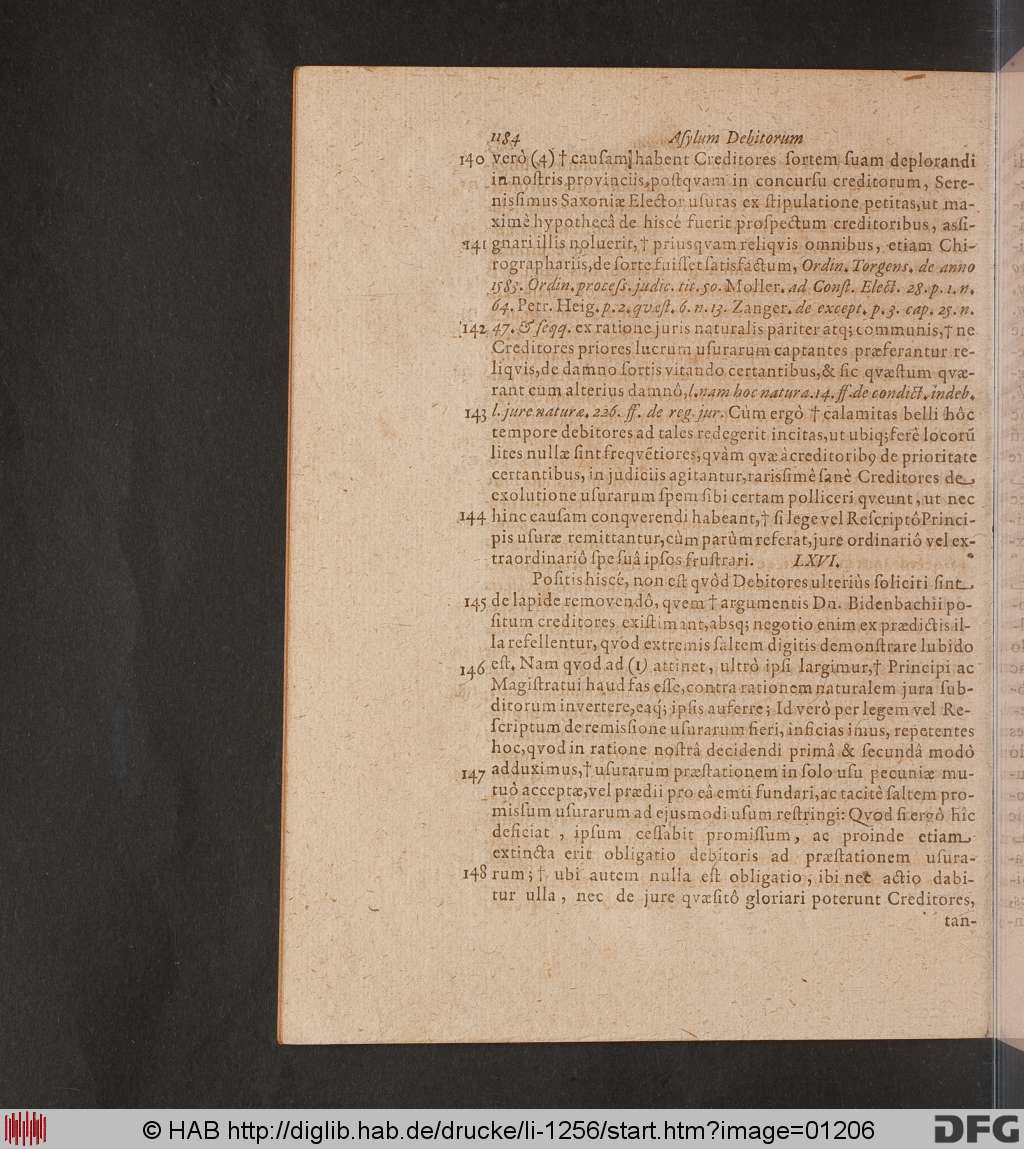 1184 Aſylum Debitorum
140 verò (4) † cauſam habent Creditores ſortem ſuam deplorandi
in noſtris provinciis, poſtqvam in concurſu creditorum, Sere-
niſſimus Saxoniæ Elector uſuras ex ſtipulatione petitas, ut ma-
ximè hypothecâ de hiscé fuerit proſpectum creditoribus, aſſi-
141 gnari illis noluerit, † priusqvam reliqvis omnibus, etiam Chi-
rographariis, de ſorte fuiſſet ſatisfactum, Ordin. Torgens. de anno
1583. Ordin. proceſs. judic. tit. 50. Moller. ad Conſt. Elect. 28. p. 1. n.
64. Petr. Heig. p. 2. qvæſt. 6. n. 13. Zanger. de except. p. 3. cap. 25. n.
142 47. & ſeqq. ex ratione juris naturalis pariter atq; communis, † ne
Creditores priores lucrum uſurarum captantes præferantur re-
liqvis, de damno ſortis vitando certantibus, & ſic qvæſtum qvæ-
rant cum alterius damnô, l. nam hoc natura. 14. ff. de condict. indeb.
143 l. jure naturæ. 226. ff. de reg. jur. Cùm ergò † calamitas belli hôc
tempore debitores ad tales redegerit incitas, ut ubiq; ferè locorũ
lites nullæ ſint freqvẽtiores, qvàm qvæ à creditorib9 de prioritate
certantibus, in judiciis agitantur, rarisſimè ſanè Creditores de
exolutione uſurarum ſpem ſibi certam polliceri qveunt, ut nec
144 hinc cauſam conqverendi habeant, † ſi lege vel Reſcriptô Princi-
pis uſuræ remittantur, cùm parùm referat, jure ordinariô vel ex-
traordinariô ſpe ſuâ ipſos fruſtrari. LXVI.
Poſitis hiscé, non eſt qvòd Debitores ulteriùs ſoliciti ſint
145 de lapide removendô, qvem † argumentis Dn. Bidenbachii po-
ſitum creditores exiſtimant, absq; negotio enim ex prædictis il-
la refellentur, qvod extremis ſaltem digitis demonſtrare lubido
146 eſt. Nam qvod ad (1) attinet, ultrò ipſi largimur, † Principi ac
Magiſtratui haud fas eſſe, contra rationem naturalem jura ſub-
ditorum invertere, eaq́; ipſis auferre; Id verò per legem vel Re-
ſcriptum de remisſione uſurarum fieri, inficias imus, repetentes
hoc, qvod in ratione noſtrâ decidendi primâ & ſecundâ modò
147 adduximus, † uſurarum præſtationem in ſolo uſu pecuniæ mu-
tuò acceptæ, vel prædii pro eâ emti fundari, ac tacitè ſaltem pro-
misſum uſurarum ad ejusmodi uſum reſtringi: Qvod ſi ergò hîc
deficiat, ipſum ceſſabit promiſſum, ac proinde etiam
extincta erit obligatio debitoris ad præſtationem uſura-
148 rum; † ubi autem nulla eſt obligatio, ibi nec actio dabi-
tur ulla, nec de jure qvæſitô gloriari poterunt Creditores,
tan-
© HAB http://diglib.hab.de/drucke/li-1256/start.htm?image=01206
DFG